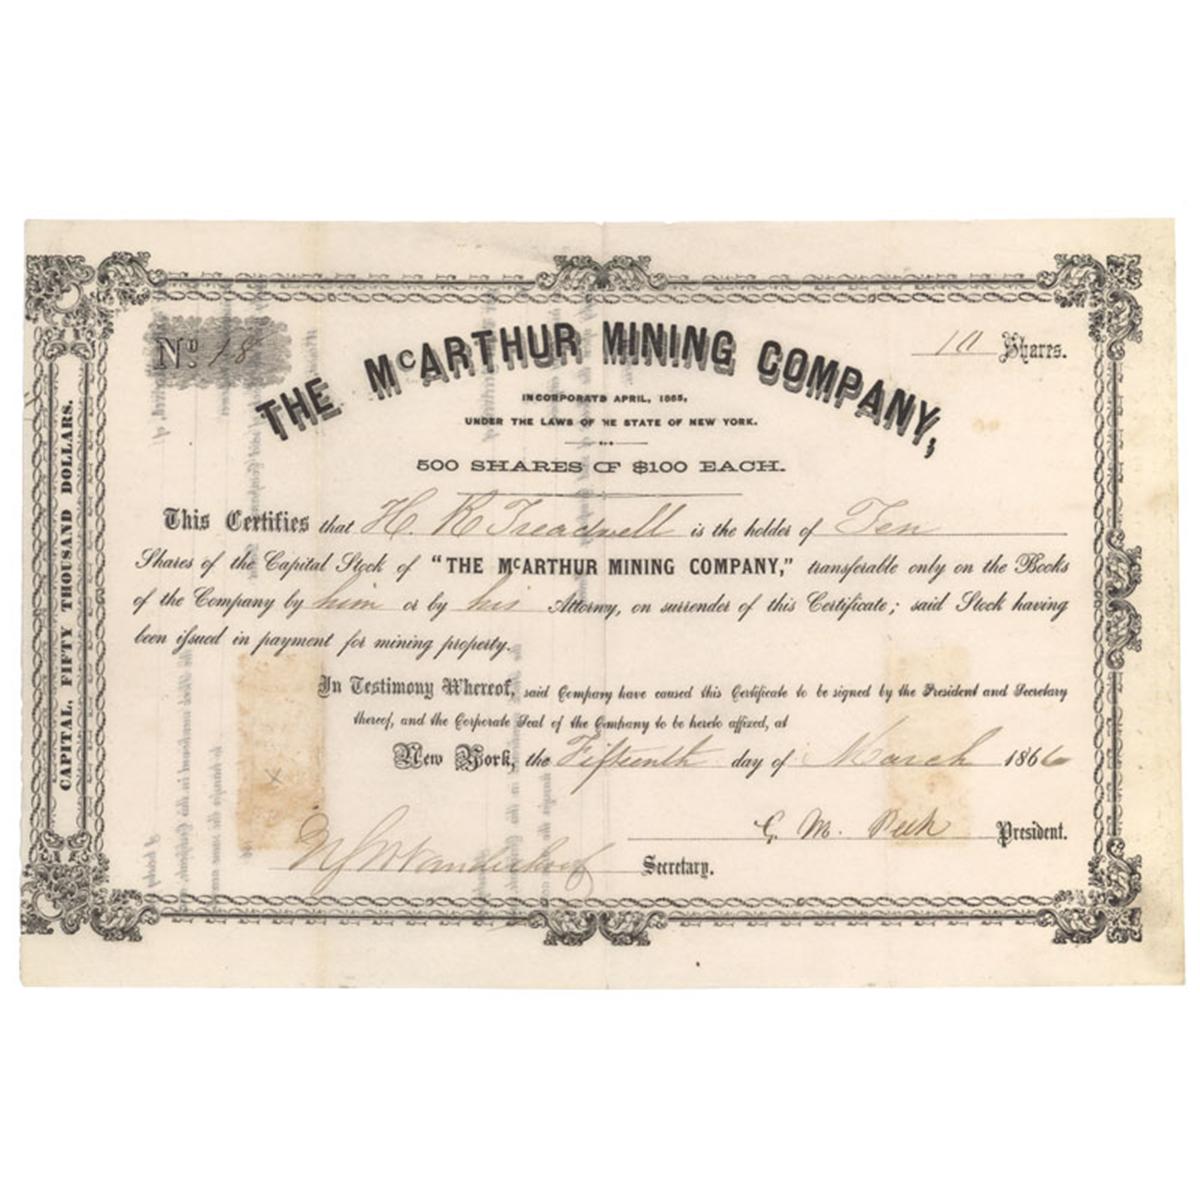 No 18
10 Shares.
THE McARTHUR MINING COMPANY,
INCORPORATD APRIL, 1865,
UNDER THE LAWS OF HE STATE OF NEW YORK.
500 SHARES OF $100 EACH.
This Certifies that H. R Treadwell is the holder of Ten
Shares of the Capital Stock of "THE McARTHUR MINING COMPANY," transferable only on the Books
of the Company by him or by his Attorney, on surrender of this Certificate; said Stock having
been issued in payment for mining property.
In Testimony Whereof, said Company have caused this Certificate to be signed by the President and Secretary
thereof, and the Corporate Seal of the Company to be hereto affixed, at
New York, the Fifteenth day of March 1866
C. M. Peck President.
Secretary.
CAPITAL, FIFTY THOUSAND DOLLARS.